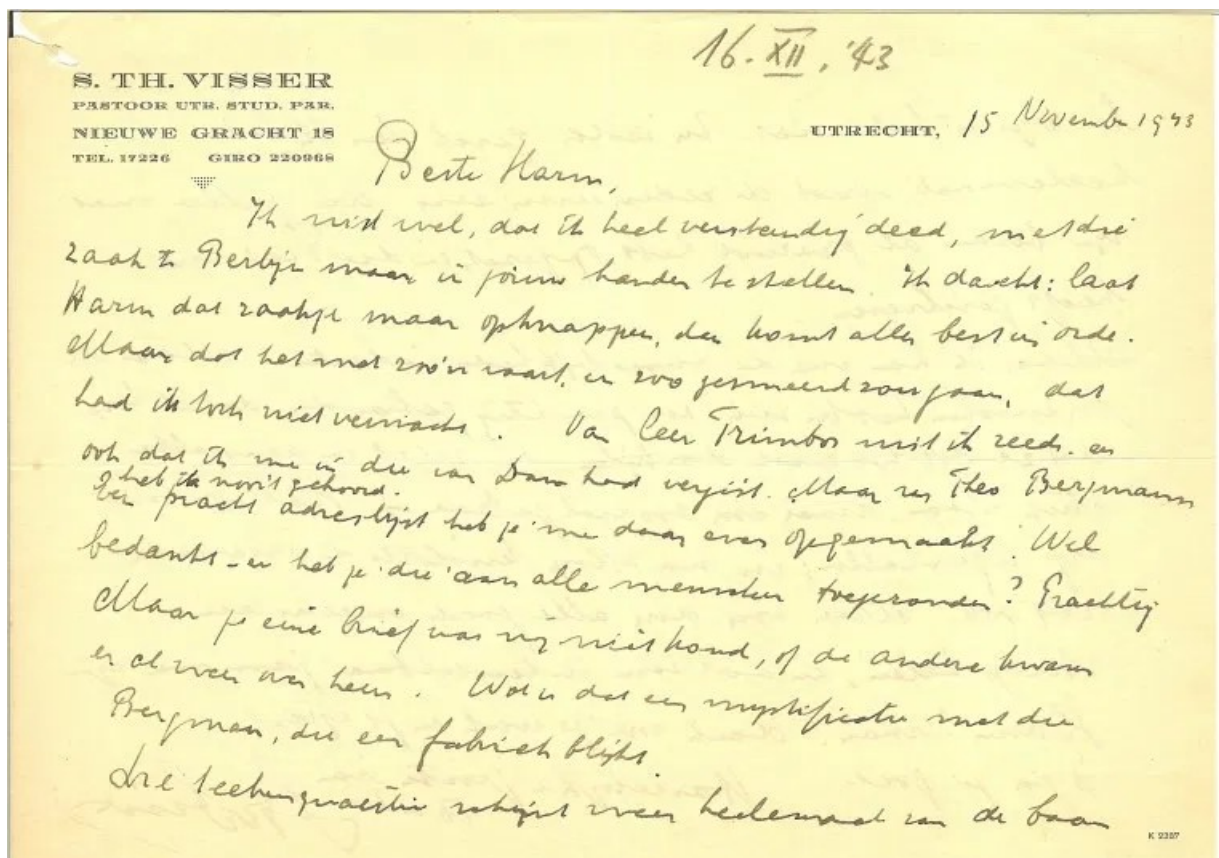 16. XII. '43
S. TH. VISSER
PASTOOR UTR. STUD. PAR.
NIEUWE GRACHT 18
TEL. 17226 GIRO 220968
UTRECHT, 15 November 1943
Beste Harm,
Ik wist wel, dat ik heel verstandig deed, met die
zaak te Berlijn maar in jouw handen te stellen. Ik dacht: laat
Harm dat zaakje maar opknappen, dan komt alles best in orde.
Maar dat het met zoo'n vaart, en zoo gesmeerd zou gaan, dat
had ik toch niet verwacht. Van Ceer Trimbos wist ik reeds. en
ook dat ik me in die van Dam had vergist. Maar van Theo Bergmann
heb ik nooit gehoord.
Een pracht adreslijst heb je me daar even opgemaakt! Wel
bedankt - en heb je die aan alle menschen toegezonden? Prachtig
Maar je eine brief was nog niet koud, of de andere kwam
er al weer over heen. Wat is dat een mystificatie met die
Bergman, die een fabriek blijkt.
Die schijnt weer heelemaal van de baan
K 2307